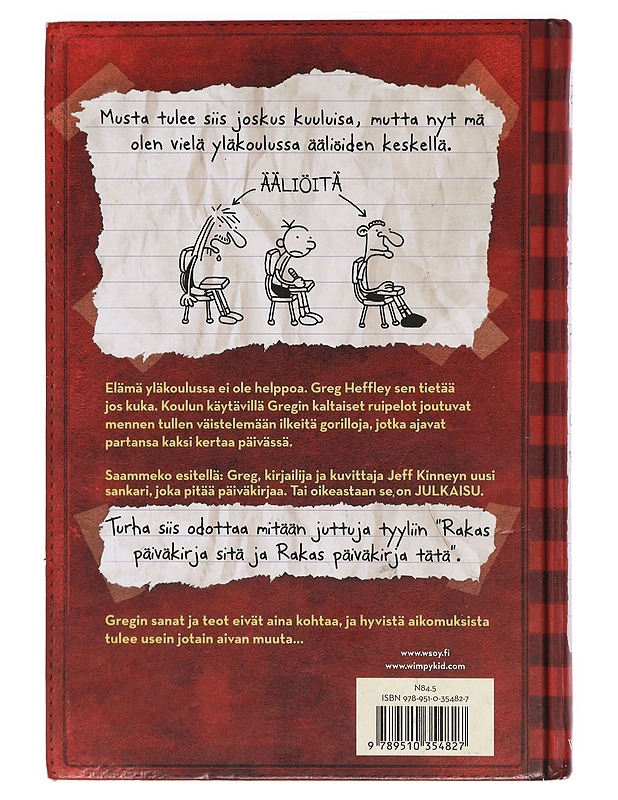 Musta tulee siis joskus kuuluisa, mutta nyt mä
olen vielä yläkoulussa ääliöiden keskellä.
ÄÄLIÖITÄ
Elämä yläkoulussa ei ole helppoa. Greg Heffley sen tietää
jos kuka. Koulun käytävillä Gregin kaltaiset ruipelot joutuvat
mennen tullen väistelemään ilkeitä gorilloja, jotka ajavat
partansa kaksi kertaa päivässä.
Saammeko esitellä: Greg, kirjailija ja kuvittaja Jeff Kinneyn uusi
sankari, joka pitää päiväkirjaa. Tai oikeastaan se on JULKAISU.
Turha siis odottaa mitään juttuja tyyliin "Rakas
päiväkirja sitä ja Rakas päiväkirja tätä".
Gregin sanat ja teot eivät aina kohtaa, ja hyvistä aikomuksista
tulee usein jotain aivan muuta...
www.wsoy.fi
www.wimpykid.com
N84.5
ISBN 978-951-0-35482-7
9 789510 354827